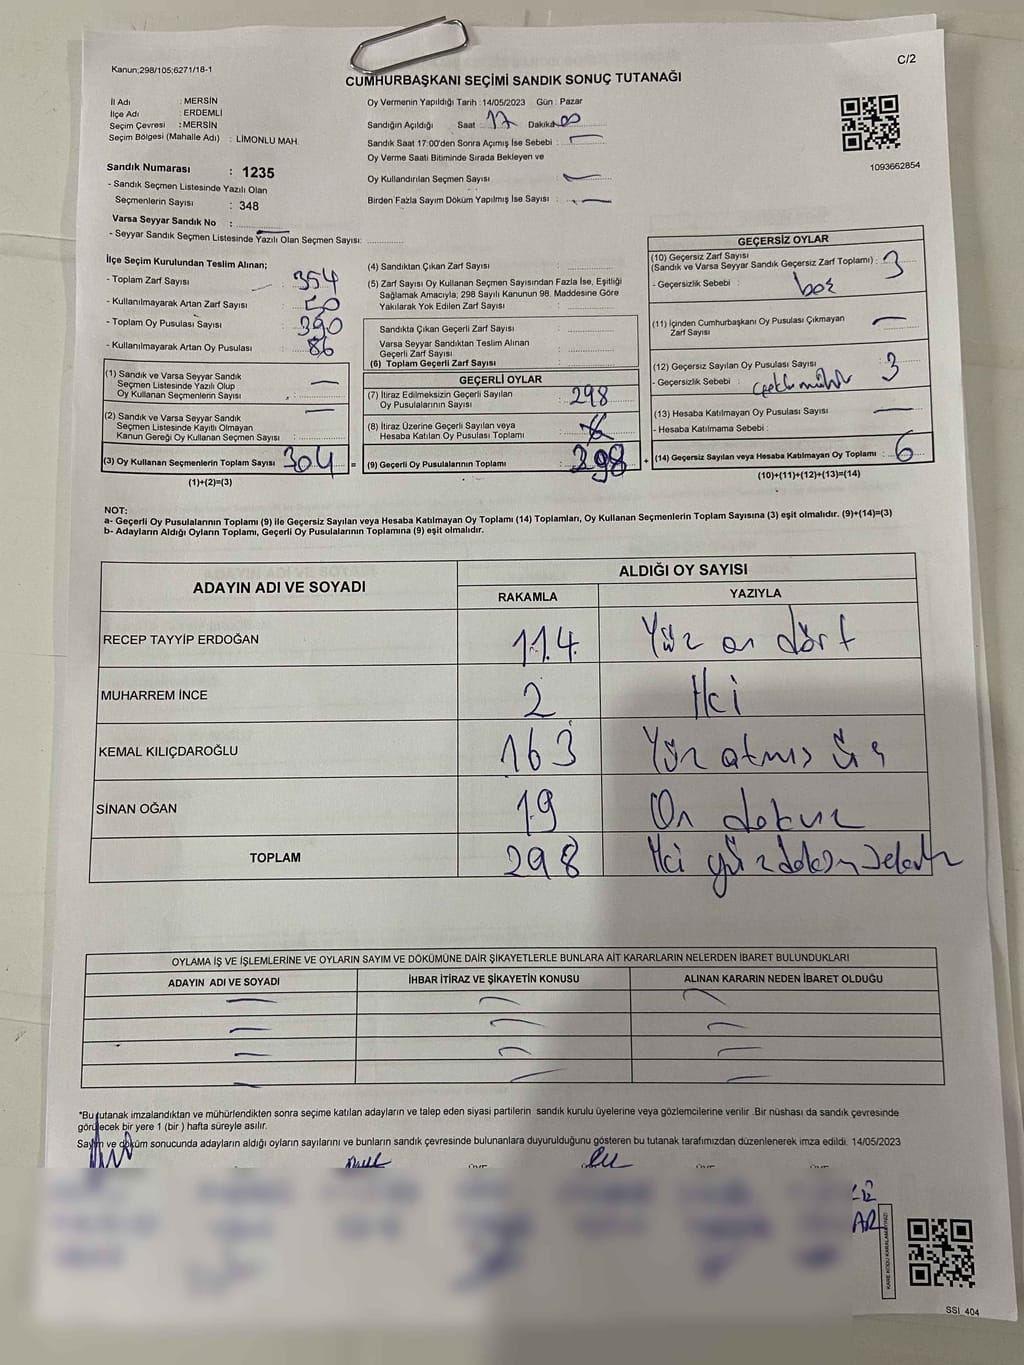 Kanun;298/105;6271/18-1
C/2
CUMHURBAŞKANI SEÇİMİ SANDIK SONUÇ TUTANAĞI
İl Adı : MERSİN
İlçe Adı : ERDEMLİ
Seçim Çevresi : MERSİN
Seçim Bölgesi (Mahalle Adı) : LİMONLU MAH.
Oy Vermenin Yapıldığı Tarih : 14/05/2023 Gün : Pazar
Sandığın Açıldığı Saat : 17 Dakika 00
Sandık Saat 17:00'den Sonra Açımış İse Sebebi :
Oy Verme Saati Bitiminde Sırada Bekleyen ve
Oy Kullandırılan Seçmen Sayısı :
Birden Fazla Sayım Döküm Yapılmış İse Sayısı :
1093662854
Sandık Numarası : 1235
- Sandık Seçmen Listesinde Yazılı Olan
Seçmenlerin Sayısı : 348
Varsa Seyyar Sandık No :
- Seyyar Sandık Seçmen Listesinde Yazılı Olan Seçmen Sayısı:
İlçe Seçim Kurulundan Teslim Alınan;
- Toplam Zarf Sayısı : 354
- Kullanılmayarak Artan Zarf Sayısı : 50
- Toplam Oy Pusulası Sayısı : 390
- Kullanılmayarak Artan Oy Pusulası : 86
(1) Sandık ve Varsa Seyyar Sandık
Seçmen Listesinde Yazılı Olup
Oy Kullanan Seçmenlerin Sayısı :
(2) Sandık ve Varsa Seyyar Sandık
Seçmen Listesinde Kayıtlı Olmayan
Kanun Gereği Oy Kullanan Seçmen Sayısı :
(3) Oy Kullanan Seçmenlerin Toplam Sayısı 304
(1)+(2)=(3)
(4) Sandıktan Çıkan Zarf Sayısı :
(5) Zarf Sayısı Oy Kullanan Seçmen Sayısından Fazla İse, Eşitliği
Sağlamak Amacıyla; 298 Sayılı Kanunun 98. Maddesine Göre
Yakılarak Yok Edilen Zarf Sayısı :
Sandıkta Çıkan Geçerli Zarf Sayısı :
Varsa Seyyar Sandıktan Teslim Alınan
Geçerli Zarf Sayısı :
(6) Toplam Geçerli Zarf Sayısı :
GEÇERLİ OYLAR
(7) İtiraz Edilmeksizin Geçerli Sayılan
Oy Pusulalarının Sayısı : 298
(8) İtiraz Üzerine Geçerli Sayılan veya
Hesaba Katılan Oy Pusulası Toplamı :
= (9) Geçerli Oy Pusulalarının Toplamı : 298 +
GEÇERSİZ OYLAR
(10) Geçersiz Zarf Sayısı
(Sandık ve Varsa Seyyar Sandık Geçersiz Zarf Toplamı) : 3
- Geçersizlik Sebebi : boş
(11) İçinden Cumhurbaşkanı Oy Pusulası Çıkmayan
Zarf Sayısı :
(12) Geçersiz Sayılan Oy Pusulası Sayısı : 3
- Geçersizlik Sebebi :
(13) Hesaba Katılmayan Oy Pusulası Sayısı :
- Hesaba Katılmama Sebebi :
(14) Geçersiz Sayılan veya Hesaba Katılmayan Oy Toplamı : 6
(10)+(11)+(12)+(13)=(14)
NOT:
a- Geçerli Oy Pusulalarının Toplamı (9) ile Geçersiz Sayılan veya Hesaba Katılmayan Oy Toplamı (14) Toplamları, Oy Kullanan Seçmenlerin Toplam Sayısına (3) eşit olmalıdır. (9)+(14)=(3)
b- Adayların Aldığı Oyların Toplamı, Geçerli Oy Pusulalarının Toplamına (9) eşit olmalıdır.
ADAYIN ADI VE SOYADI
ALDIĞI OY SAYISI
RAKAMLA YAZIYLA
RECEP TAYYİP ERDOĞAN 114 Yüz on dört
MUHARREM İNCE 2 İki
KEMAL KILIÇDAROĞLU 163 Yüz atmış üç
SİNAN OĞAN 19 On dokuz
TOPLAM 298 İki yüz doksan sekiz
OYLAMA İŞ VE İŞLEMLERİNE VE OYLARIN SAYIM VE DÖKÜMÜNE DAİR ŞİKAYETLERLE BUNLARA AİT KARARLARIN NELERDEN İBARET BULUNDUKLARI
ADAYIN ADI VE SOYADI İHBAR İTİRAZ VE ŞİKAYETİN KONUSU ALINAN KARARIN NEDEN İBARET OLDUĞU
*Bu tutanak imzalandıktan ve mühürlendikten sonra seçime katılan adayların ve talep eden siyasi partilerin sandık kurulu üyelerine veya gözlemcilerine verilir .Bir nüshası da sandık çevresinde
görülecek bir yere 1 (bir ) hafta süreyle asılır.
Sayım ve döküm sonucunda adayların aldığı oyların sayılarını ve bunların sandık çevresinde bulunanlara duyurulduğunu gösteren bu tutanak tarafımızdan düzenlenerek imza edildi. 14/05/2023
KARE KODU KARALAMAYINIZ!
SSI_404